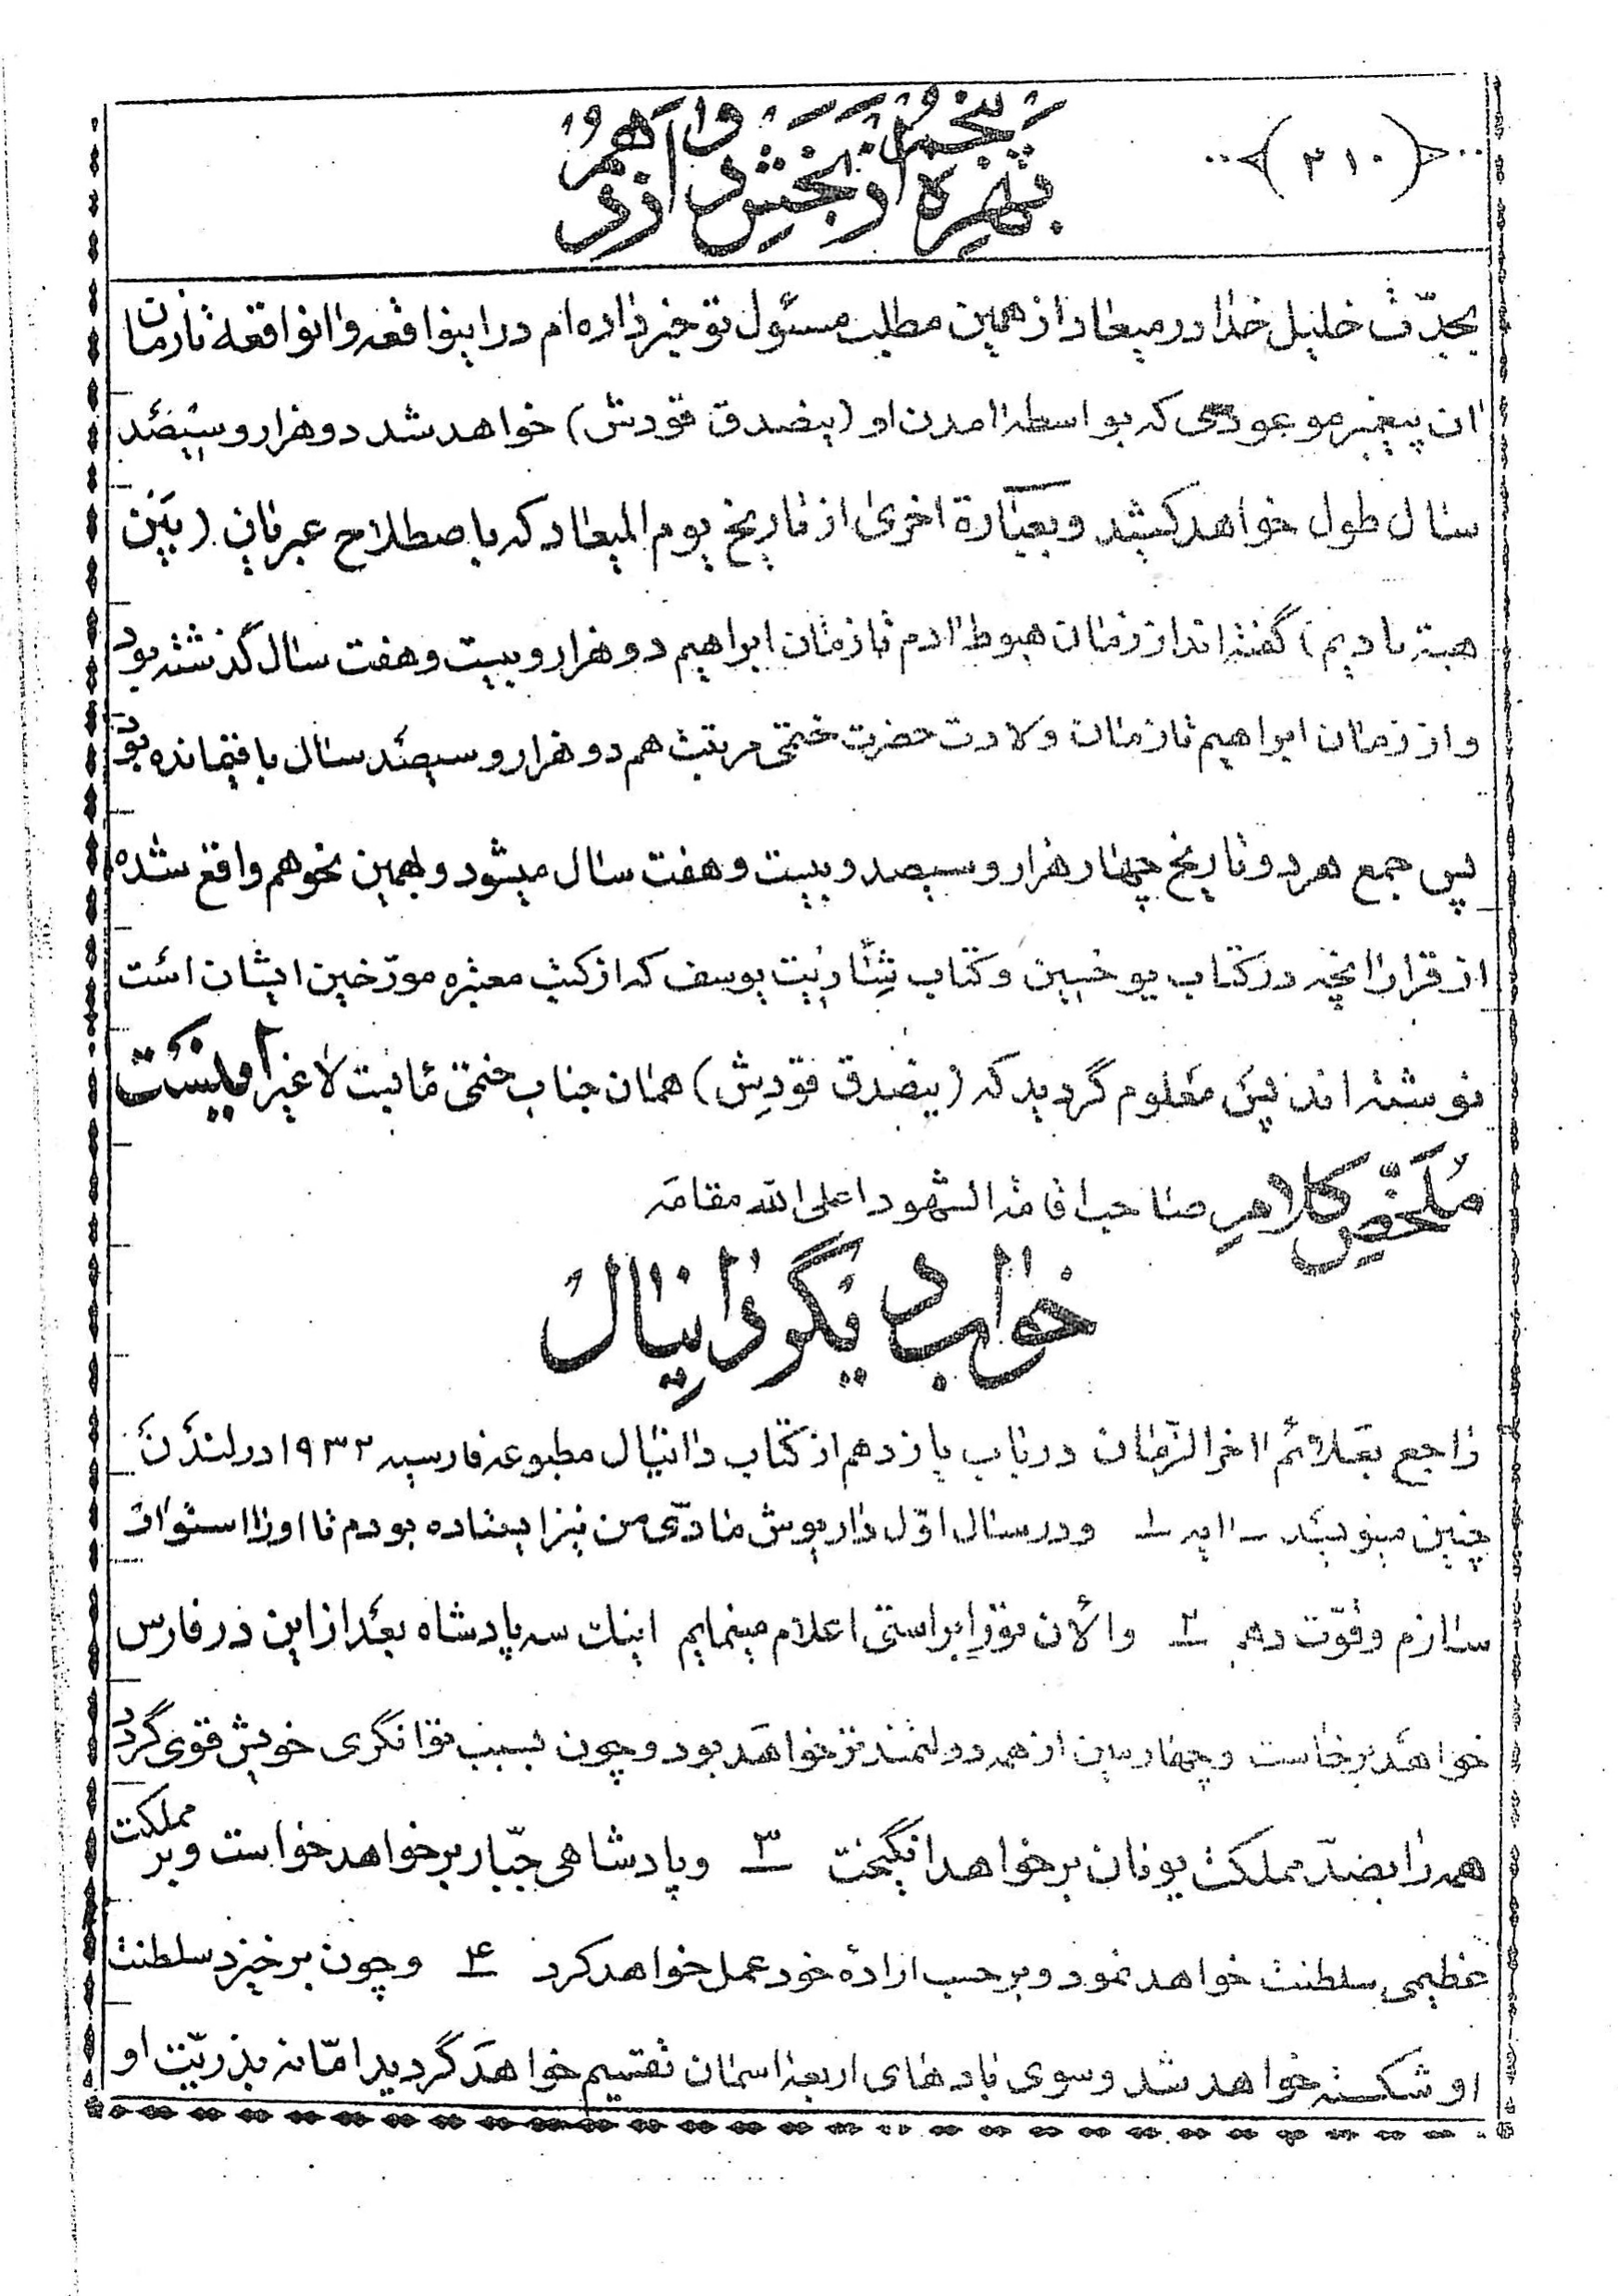 (۲۱۰)
پنجم و
بهره از بخش دوازدهم
بجدّت خلیل خدا در میعاد از همین مطلب مسئول تو خبر داده‌ام در اینواقعه و انواقعه تا زمان
ان پیغمبر موعودی که بواسطه امدن او (بیصدق قودش) خواهد شد دو هزار و سیصد
سال طول خواهد کشید و بعبارة اخری از تاریخ یوم المیعاد که باصطلاح عبریان (بین
هبتریادیم) گفته‌اند از زمان هبوط ادم تا زمان ابراهیم دو هزار و بیست و هفت سال گذشته بود
و از زمان ابراهیم تا زمان ولادت حضرت ختمی مرتبت هم دو هزار و سیصد سال باقیمانده بود
پس جمع هر دو تاریخ چهار هزار و سیصد و بیست و هفت سال میشود و بهمین نحو هم واقع شده
از قرار انچه در کتاب یوخسین و کتاب شئاریت یوسف که از کتب معتبره مورّخین ایشان است
نوشته‌اند پس معلوم گردید که (بیصدق قودش) همان جناب ختمی مابت لا غیر
ملخّص کلام صاحب اقامة الشهود اعلی الله مقامه
خواب دیگر دانیال
راجع بعلائم اخر الزّمان در باب یازدهم از کتاب دانیال مطبوعه فارسیه ۱۹۳۲ در لندن
چنین مینویسد - ۱۱ ایه ۱ و در سال اوّل داریوش مادی من نیز ایستاده بودم تا او را استوار
سازم و قوّت دهم ۲ و الان تو را براستی اعلام مینمایم اینک سه پادشاه بعد از این در فارس
خواهد برخاست و چهارمین از همه دولتمندتر خواهد بود و چون بسبب توانگری خویش قوی گردد
همه را بضدّ مملکت یونان برخواهد انگیخت ۳ و پادشاهی جبّار برخواهد خواست و بر مملکت
عظیمی سلطنت خواهد نمود و بر حسب ارادهٔ خود عمل خواهد کرد ۴ و چون برخیزد سلطنت
او شکسته خواهد شد و سوی بادهای اربعه اسمان تقسیم خواهد گردید امّا نه بذریّت او